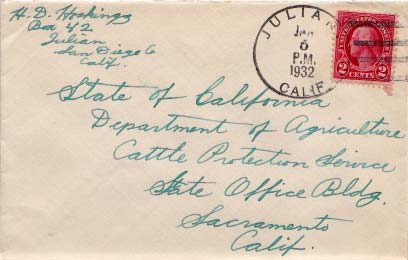 H. D. Hoskings
Box 42
Julian
San Diego Co
Calif.
JULIAN
JAN
5
P.M.
1932
CALIF
UNITED STATES POSTAGE
2 2
CENTS
State of California
Department of Agriculture
Cattle Protection Service
State Office Bldg.
Sacramento
Calif.